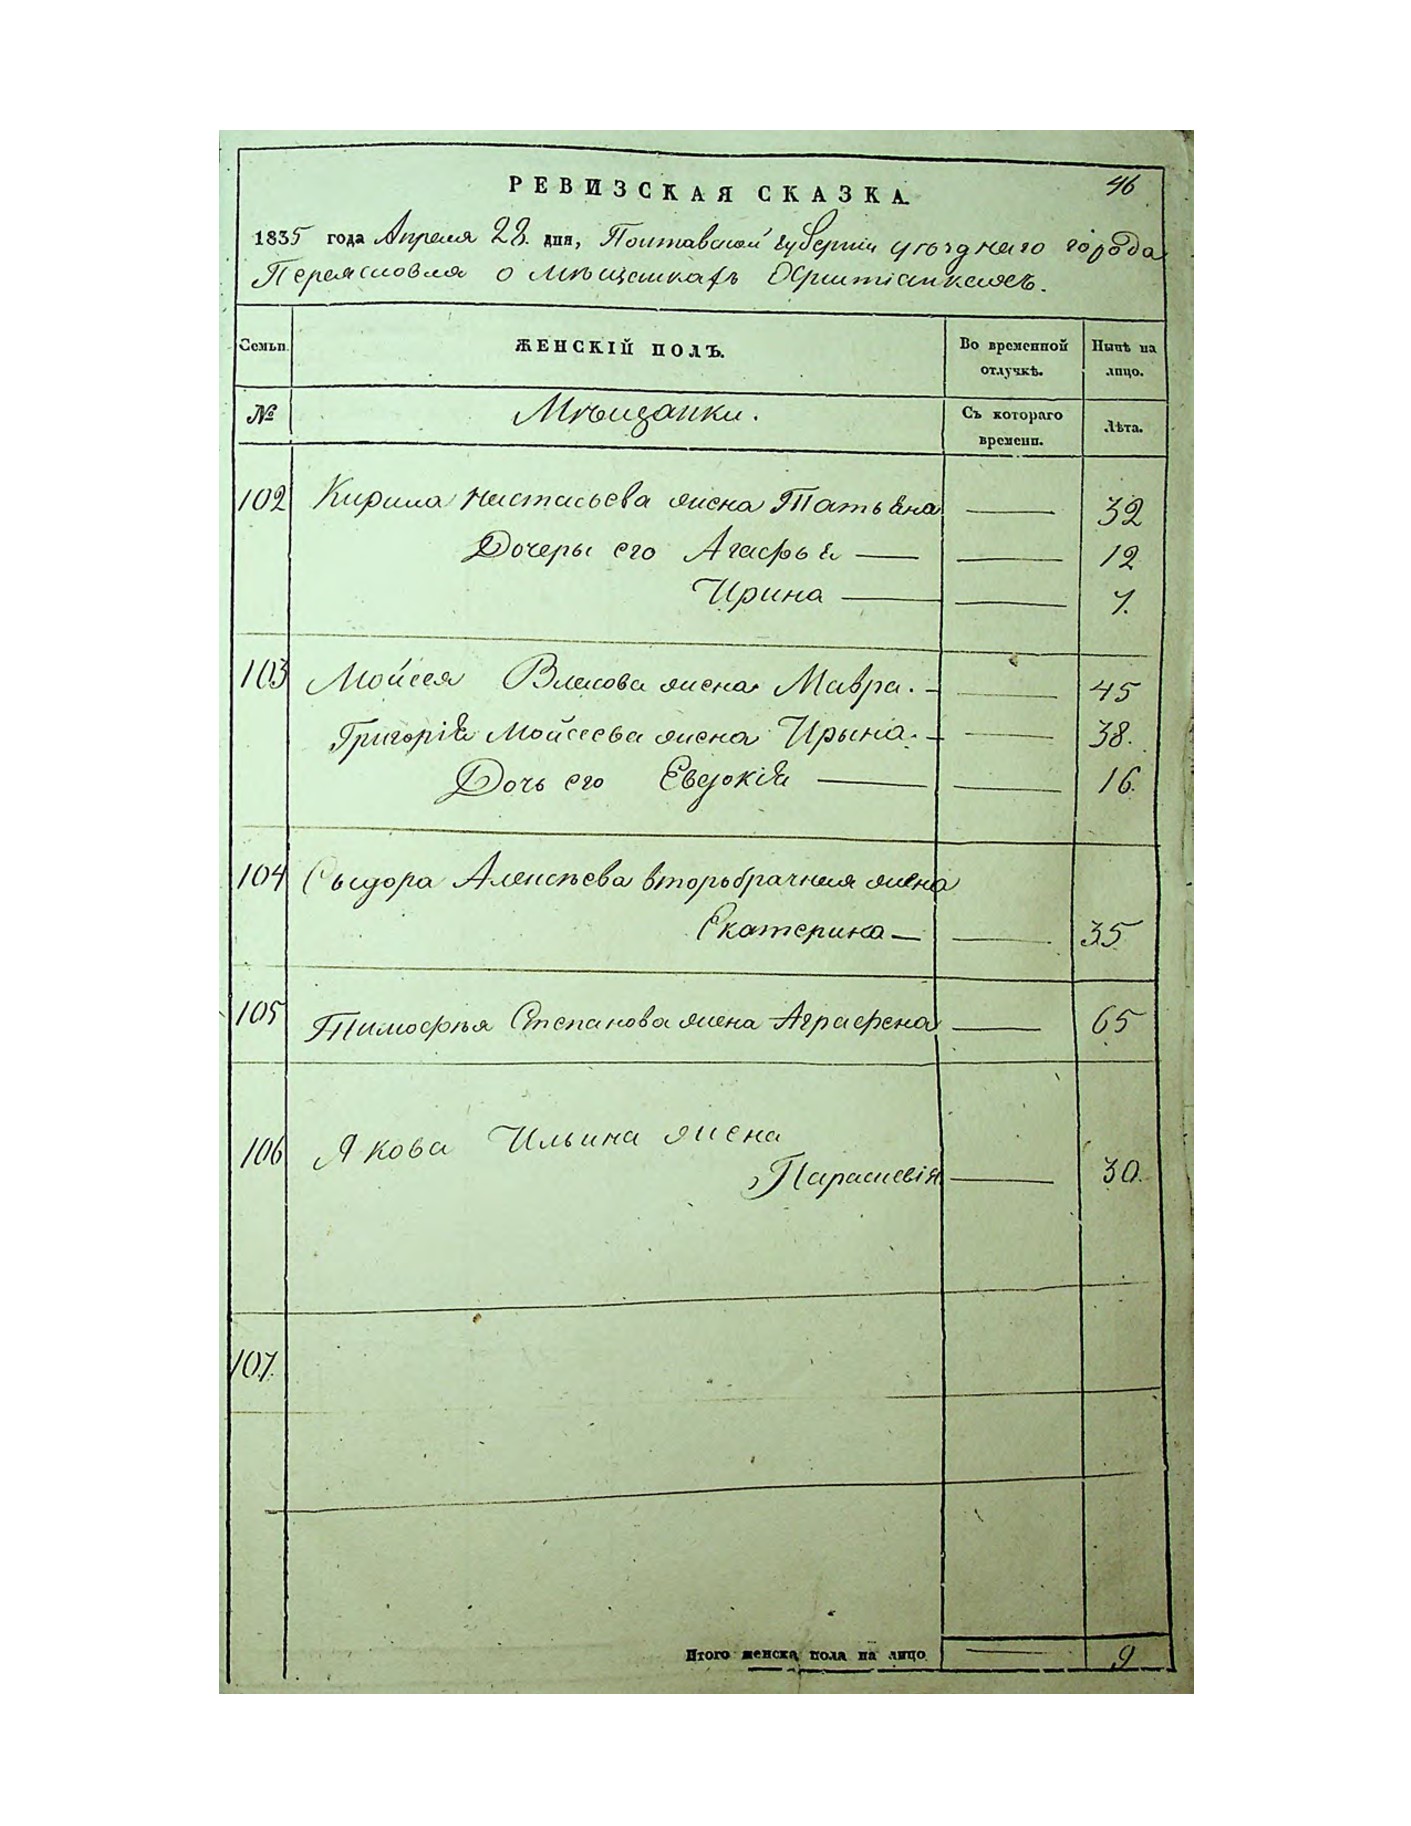 46
РЕВИЗСКАЯ СКАЗКА.
1835 года Апреля 28. дня, Полтавской губернии уезднаго города
Переяславля о мѣщанкахъ Христіанкахъ.
Семьи. ЖЕНСКІЙ ПОЛЪ. Во временной отлучкѣ. Нынѣ на лицо.
№ Мѣщанки. Съ котораго времени. Лѣта.
102 Кирила жена Татьяна — 32
Дочеры его Агафья — — 12
Ирина — — 7.
103 Мойсея Власова жена Мавра. — — 45
Григорія Мойсеева жена Ирына. — — 38.
Дочь его Евдокія — — 16.
104 Сыдора Алексѣева второбрачная жена
Екатерина — — 35
105 Тимофѣя Степанова жена Аграфена — 65
106 Якова Ильина жена
Параскевія — 30.
107.
Итого женска пола на лицо — 9